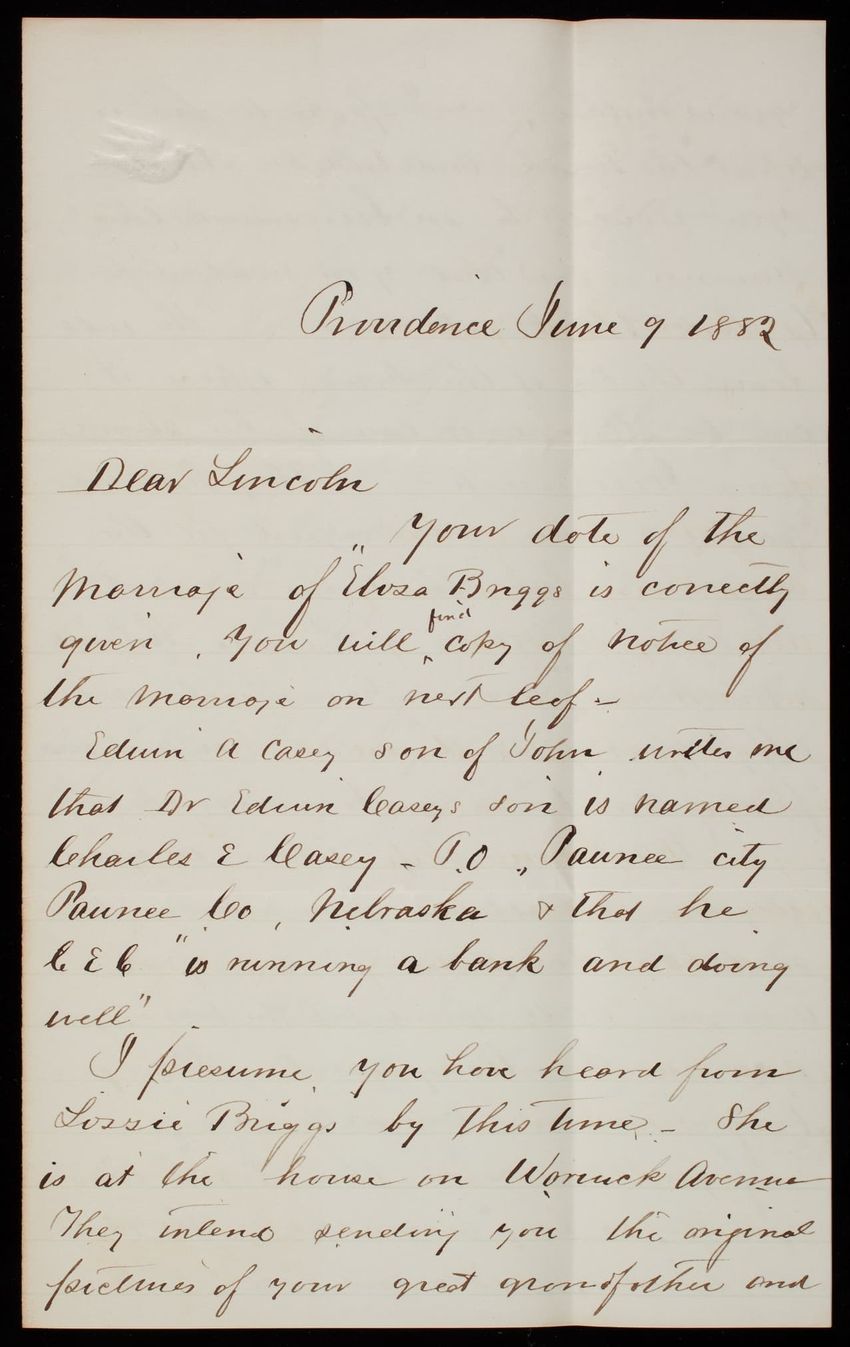 Providence June 9 1882
Dear Lincoln
Your date of the
marriage of "Eliza Briggs is correctly
given. You will find copy of notice of
the marriage on next leaf -
Edwin A Casey son of John writes me
that Dr Edwin Caseys son is named
Charles E Casey - P.O., Pawnee city
Pawnee Co, Nebraska & that he
C E C "is running a bank and doing
well".
I presume you have heard from
Lizzie Briggs by this time - She
is at the house on Warwick Avenue
They intend sending you the original
pictures of your great grandfather and